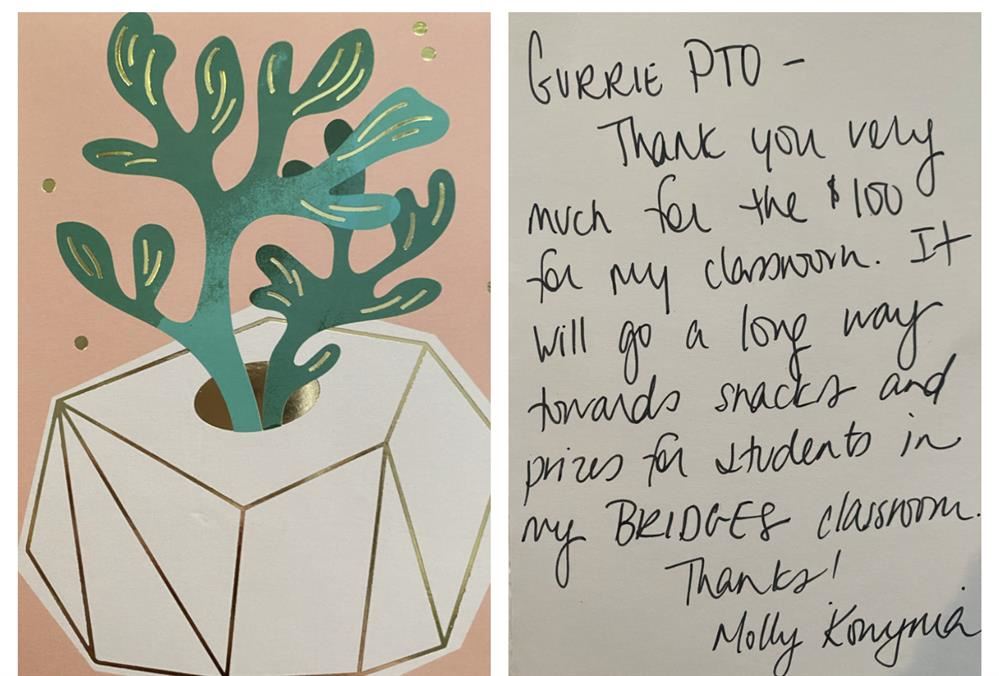 GURRIE PTO -
Thank you very
much for the $100
for my classroom. It
will go a long way
towards snacks and
prizes for students in
my BRIDGES classroom.
Thanks!
Molly Konynia